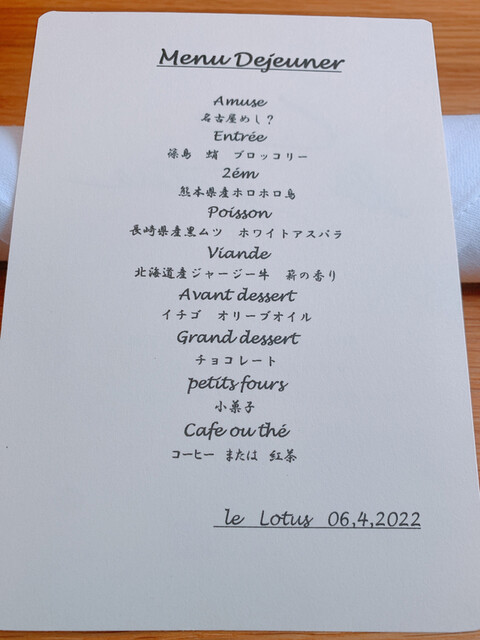 Menu Dejeuner
Amuse
名古屋めし?
Entrée
篠島 蛸 ブロッコリー
2ém
熊本県産ホロホロ鳥
Poisson
長崎県産黒ムツ ホワイトアスパラ
Viande
北海道産ジャージー牛 薪の香り
Avant dessert
イチゴ オリーブオイル
Grand dessert
チョコレート
petits fours
小菓子
Cafe ou thé
コーヒー または 紅茶
le Lotus 06,4,2022